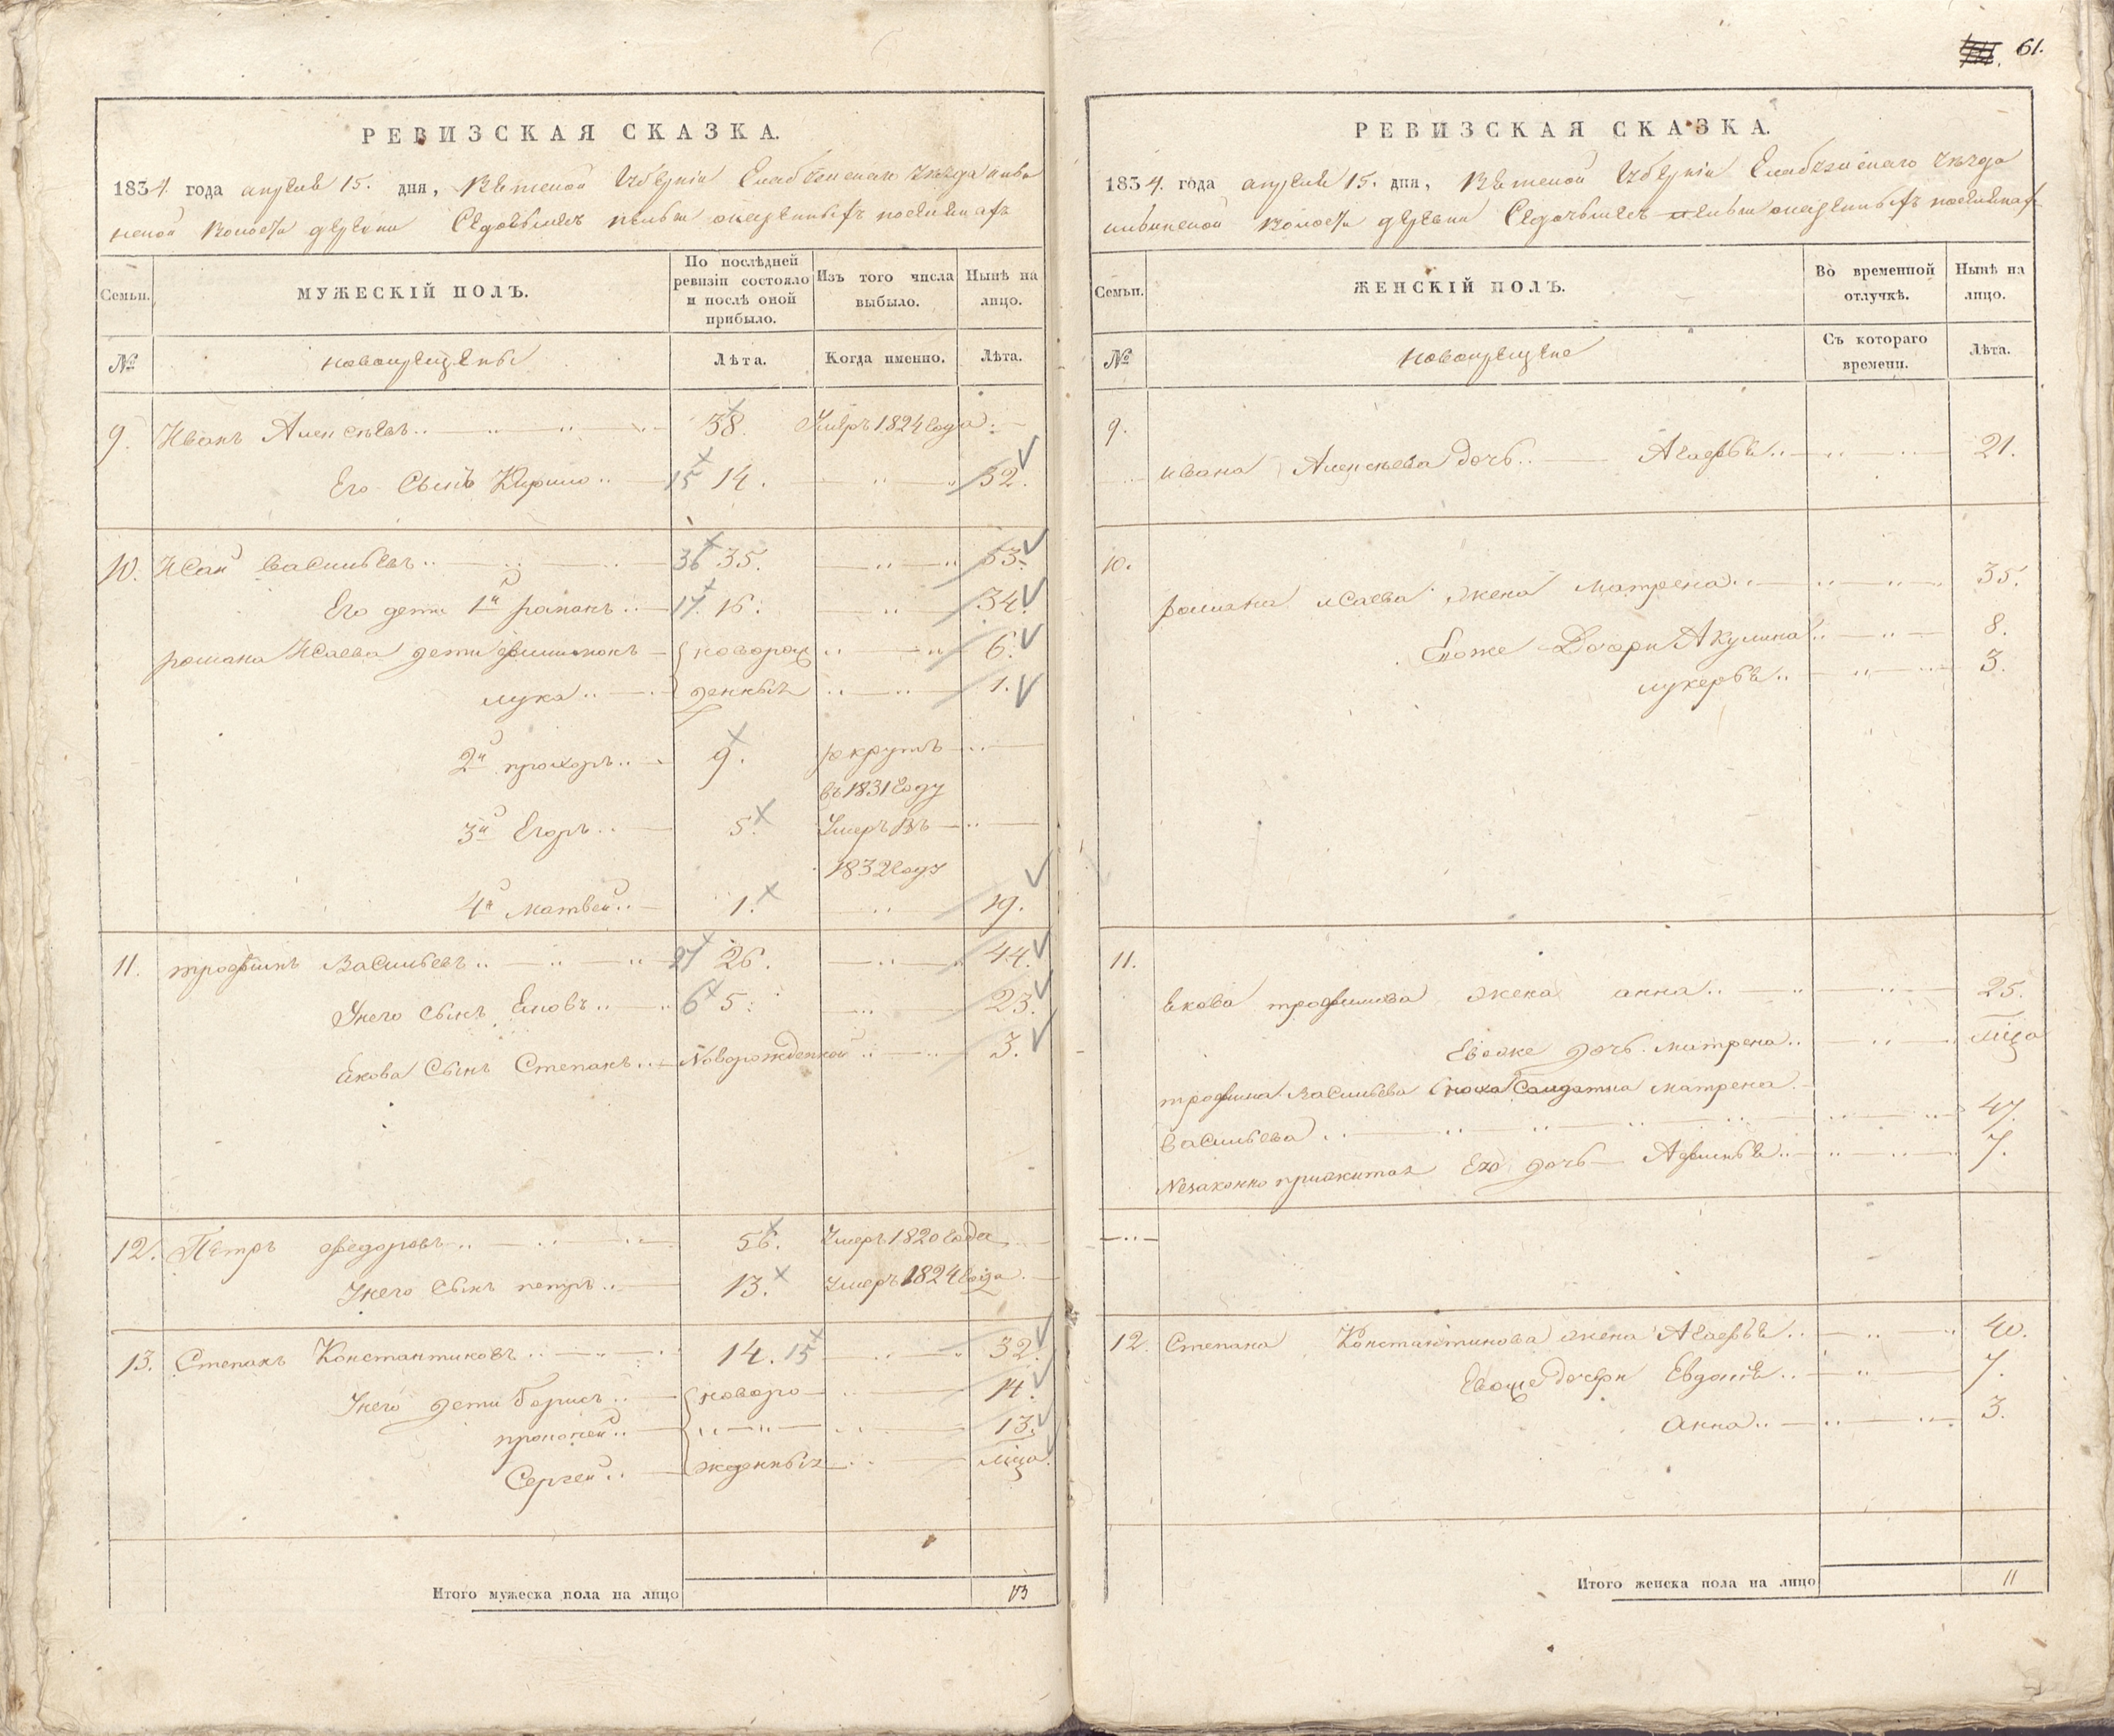 61.
РЕВИЗСКАЯ СКАЗКА.
1834. года апреля 15. дня, Вятской Губернїи Елабужскаго уезда
волости деревни
Семьи.
МУЖЕСКІЙ ПОЛЪ.
По послѣдней ревизіи состояло и послѣ оной прибыло.
Изъ того числа выбыло.
Нынѣ на лицо.
№
новокрещены
Лѣта.
Когда именно.
Лѣта.
9. Иванъ Алексѣевъ 38. Умеръ 1824 года
Его Сынъ Кирило 15 14. 32.
10. Исай Васильевъ 36 35. 53.
Его дети 1й романъ 17 16. 34.
романа Исаева дети филимонъ новорож 6.
лука денныя 1.
2й прохоръ 9. рекрутъ
въ 1831 Году
3й Егоръ 5. Умеръ въ
1832 Году
4й матвей 1. 19.
11. трофимъ Васильевъ 27 26. 44.
Унего сынъ Яковъ 6 5. 23.
Якова Сынъ Степанъ Новорожденной 3.
12. Петръ федоровъ 56. Умеръ 1820 Года
Унего Сынъ петръ 13. Умеръ 1824 Года
13. Степанъ Константиновъ 14. 15 32.
Унего дети Борисъ новоро 14.
прокопей 13.
Сергей жденныя м҃ца
Итого мужеска пола на лицо 13
РЕВИЗСКАЯ СКАЗКА.
1834. года апреля 15. дня, Вятской Губернїи Елабужскаго уезда
волости деревни
Семьи.
ЖЕНСКІЙ ПОЛЪ.
Во временной отлучкѣ.
Нынѣ на лицо.
№
новокрещене
Съ котораго времени.
Лѣта.
9.
ивана Алексеева дочь Агафья 21.
10.
романа исаева жена матрена 35.
Евоже Дочери Акулина 8.
лукерья 3.
11.
Якова трофимова жена анна 25.
Евоже дочь матрена м҃ца
трофима Васильева сноха Салдатка матрена
васильева 47.
Незаконно прижитая Ею дочь Афимья 7.
12. Степана Константинова жена Агафья 40.
Евоже дочери Евдокия 7.
анна 3.
Итого женска пола на лицо 11